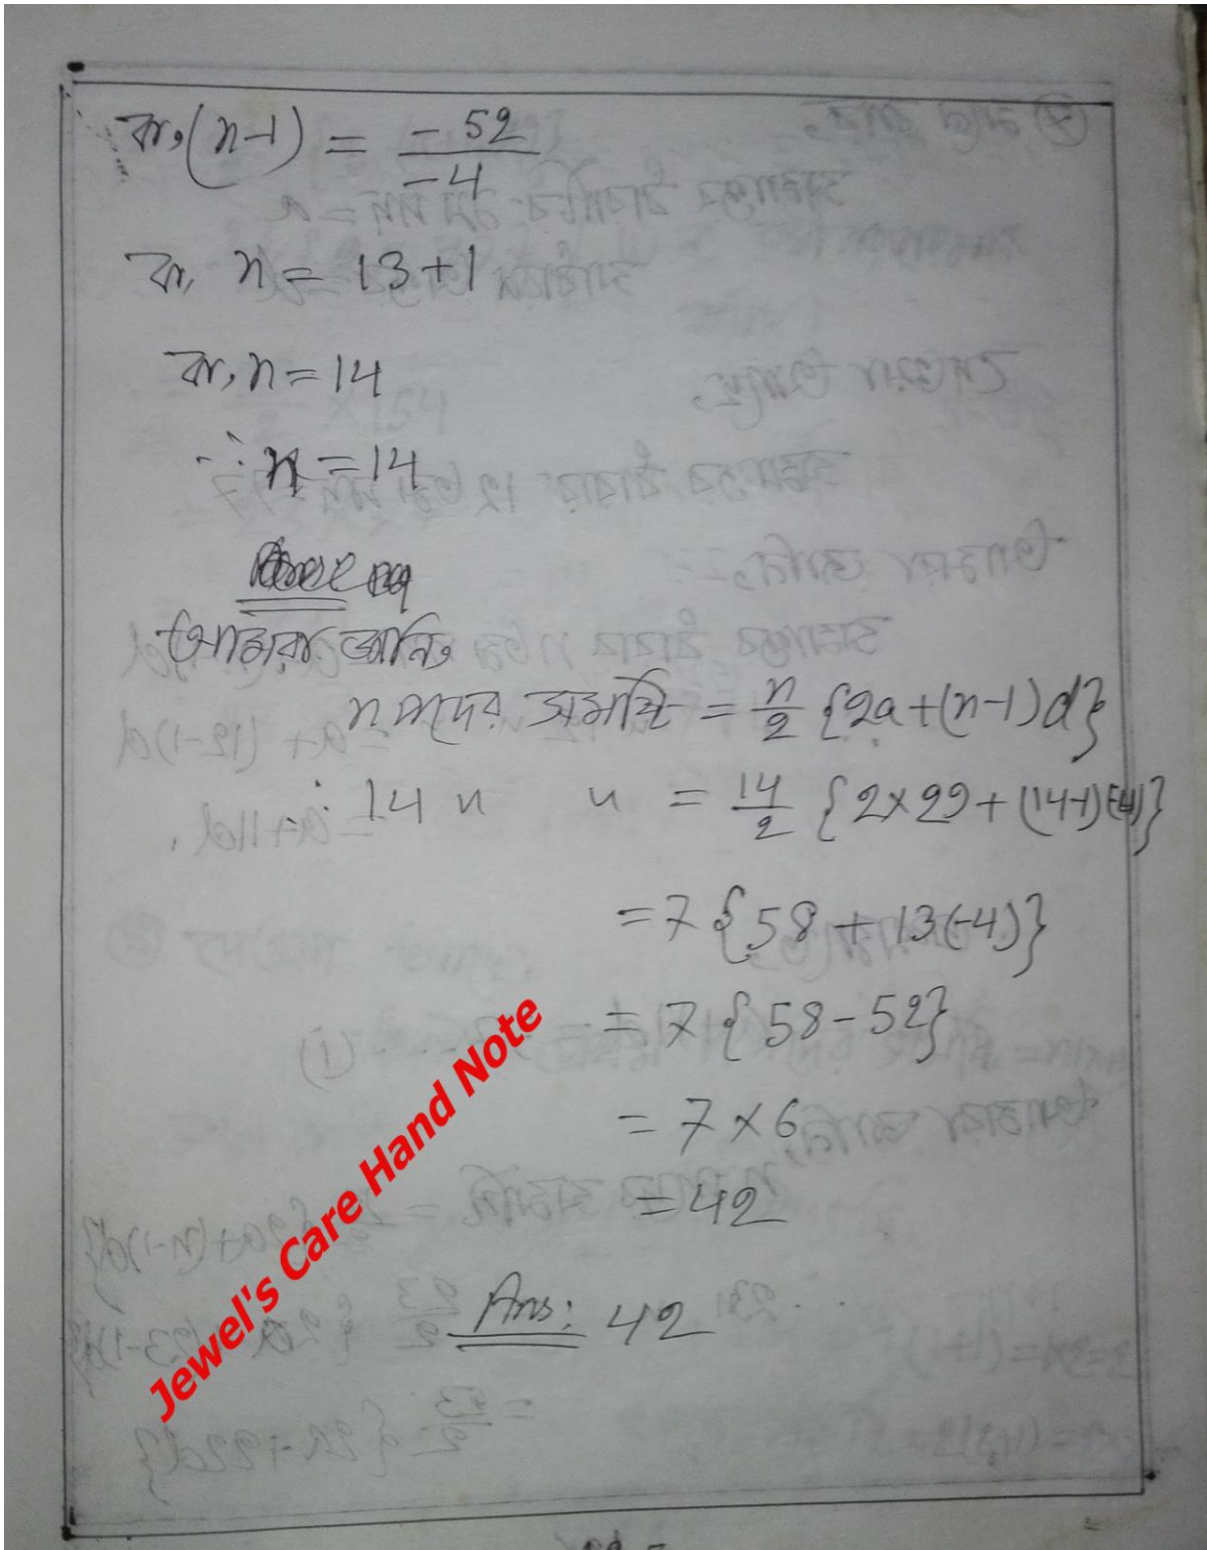 বা, (n-1) = -52/-4
বা, n = 13+1
বা, n = 14
∴ n = 14
আমরা জানি,
n পদের সমষ্টি = n/2 {2a+(n-1)d}
∴ 14 " " = 14/2 {2×29+(14-1)(-4)}
= 7 {58 + 13(-4)}
= 7 {58 - 52}
= 7 × 6
= 42
Ans: 42
Jewel's Care Hand Note